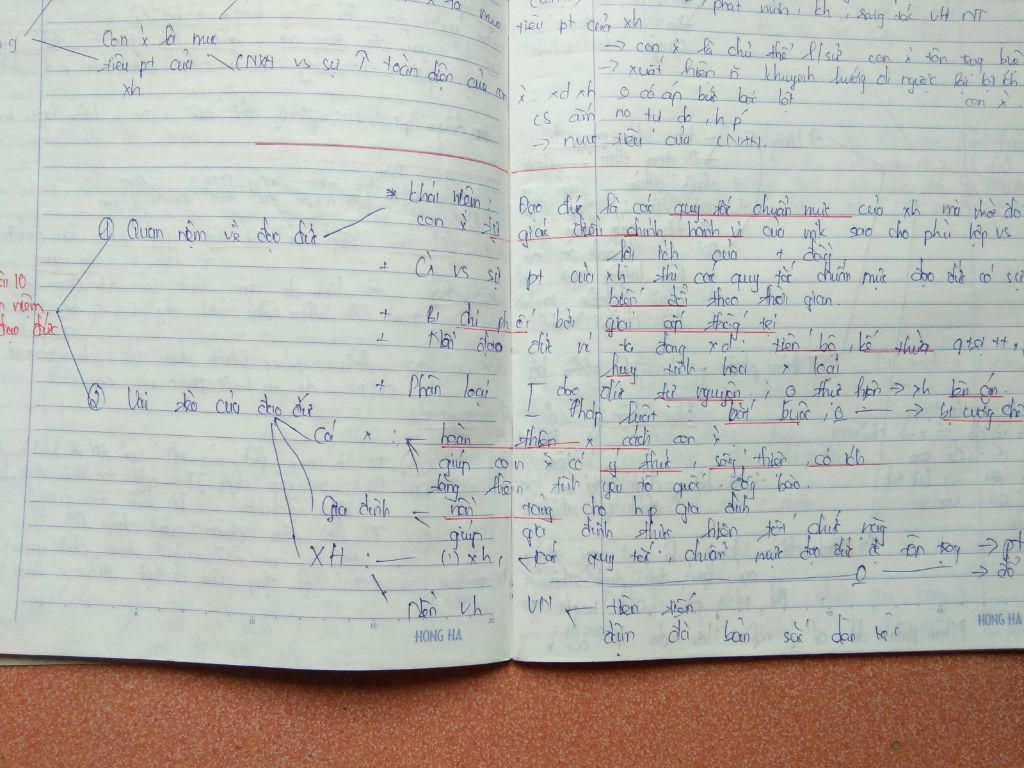 Con x là mục
tiêu pt của CNXH vs sự ↑ toàn diện của con
xh
phát minh, kh, sáng tác VH NT
tiêu pt của xh
→ con x là chủ thể l/sử con x tôn trọng
→ xuất hiện n khuynh hướng đi ngược lại
con x.
x: xd xh 0 có áp bức bóc lột
cs ấm no tự do, h p
→ mục tiêu của CNXH.
10
niệm
đạo đức
① Quan niệm về đạo đức
* khái niệm: Đạo đức là các quy tắc chuẩn mực của xh mà nhờ đó
con x tự giác điều chỉnh hành vi của mik sao cho phù hợp vs
lợi ích của + đồng
+ Cx vs sự pt của xh thì các quy tắc chuẩn mực đạo đức có sự
biến đổi theo thời gian.
+ Bị chi phối bởi giai cấp thống trị
+ Nền đạo đức vn ta đang xd: tiến bộ, kế thừa
huy tinh hoa x loại
+ Phân loại [ đạo đức tự nguyện; 0 thực hiện → xh lên án
Pháp luật: bắt buộc, 0 — → bị cưỡng chế
② Vai trò của đạo đức
Cá x: hoàn thiện x cách con x
giúp con x có ý thức, sống thiện, có ích
tăng thêm tình yêu tổ quốc, đồng bào.
Gia đình = nền tảng cho hp gia đình
giúp gia đình thực hiện tốt chức năng
XH: — xh, các quy tắc, chuẩn mực đạo đức đc tôn trọng → pt
0 — →
Nền vh VN tiên tiến
đậm đà bản sắc dân tộc
HONG HA
HONG HA